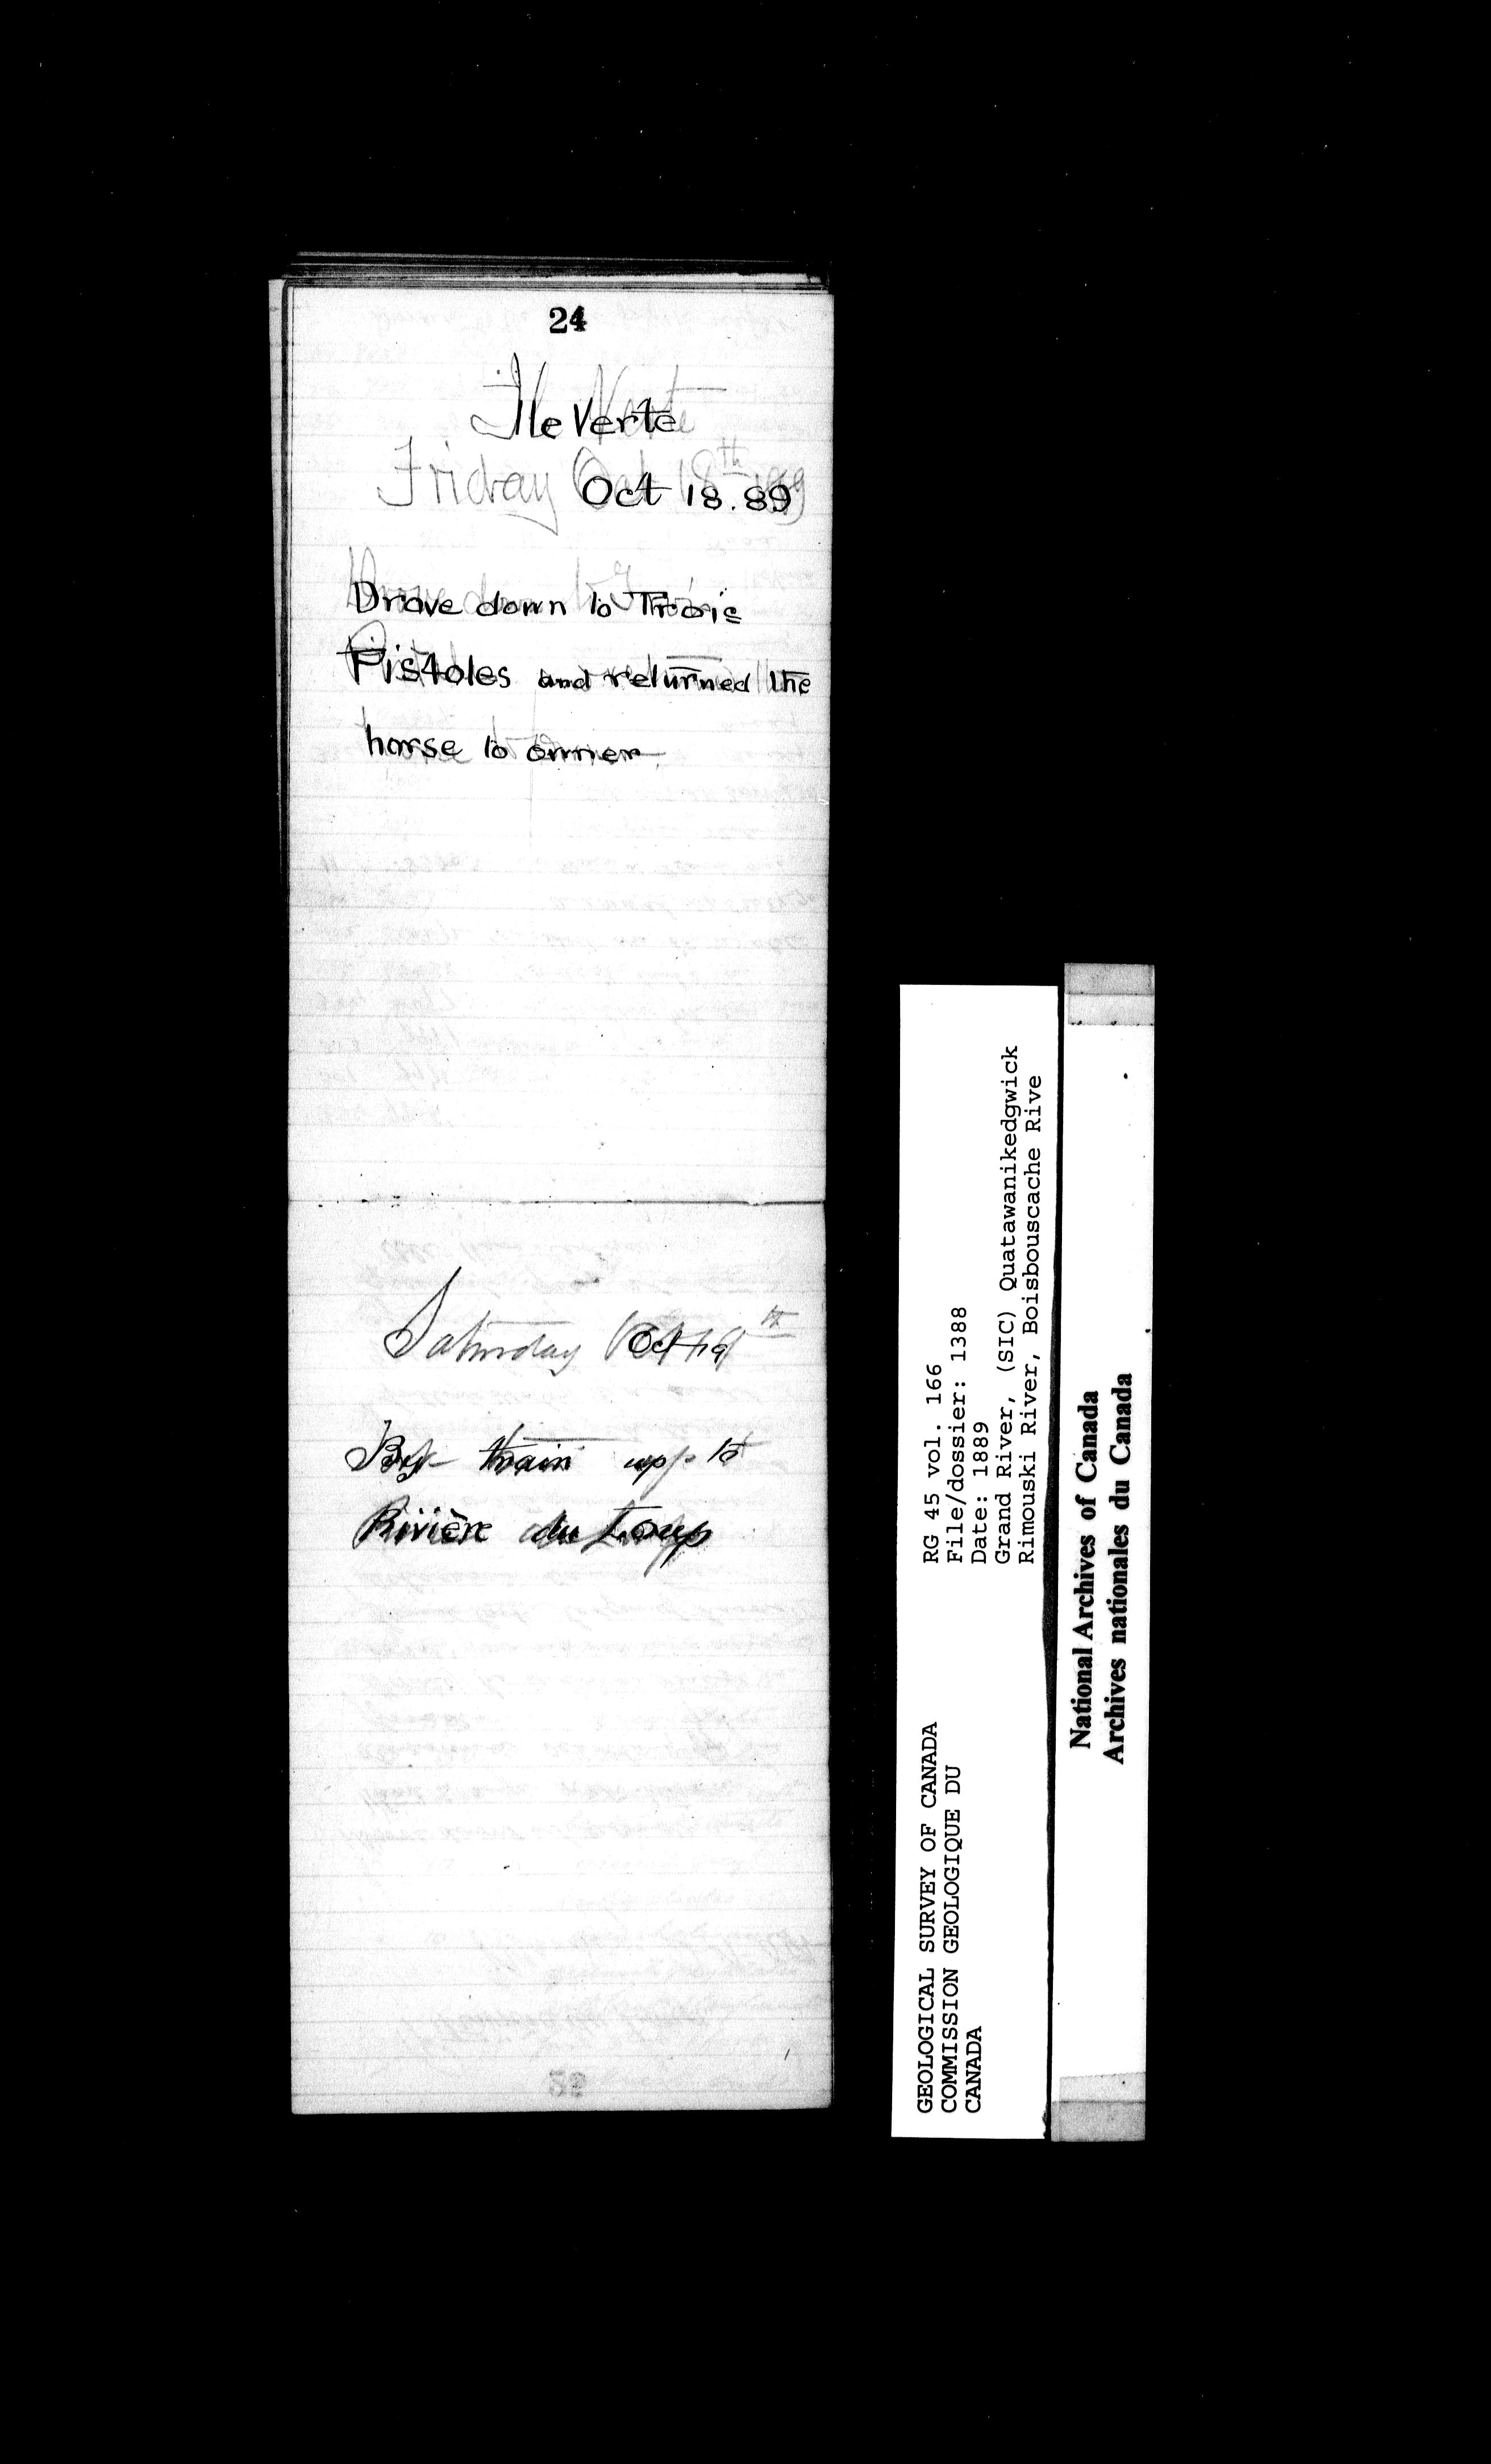 24
Ile Verte
Friday Oct 18th 1889
Oct 18. 89
Drove down to Trois
Pistoles and returned the
horse to owner
Saturday Oct 19th
train up to
Rivière du Loup
RG 45 vol. 166
File/dossier: 1388
Date: 1889
Grand River, (SIC) Quatawanikedgwick
Rimouski River, Boisbouscache Rive
GEOLOGICAL SURVEY OF CANADA
COMMISSION GEOLOGIQUE DU
CANADA
National Archives of Canada
Archives nationales du Canada